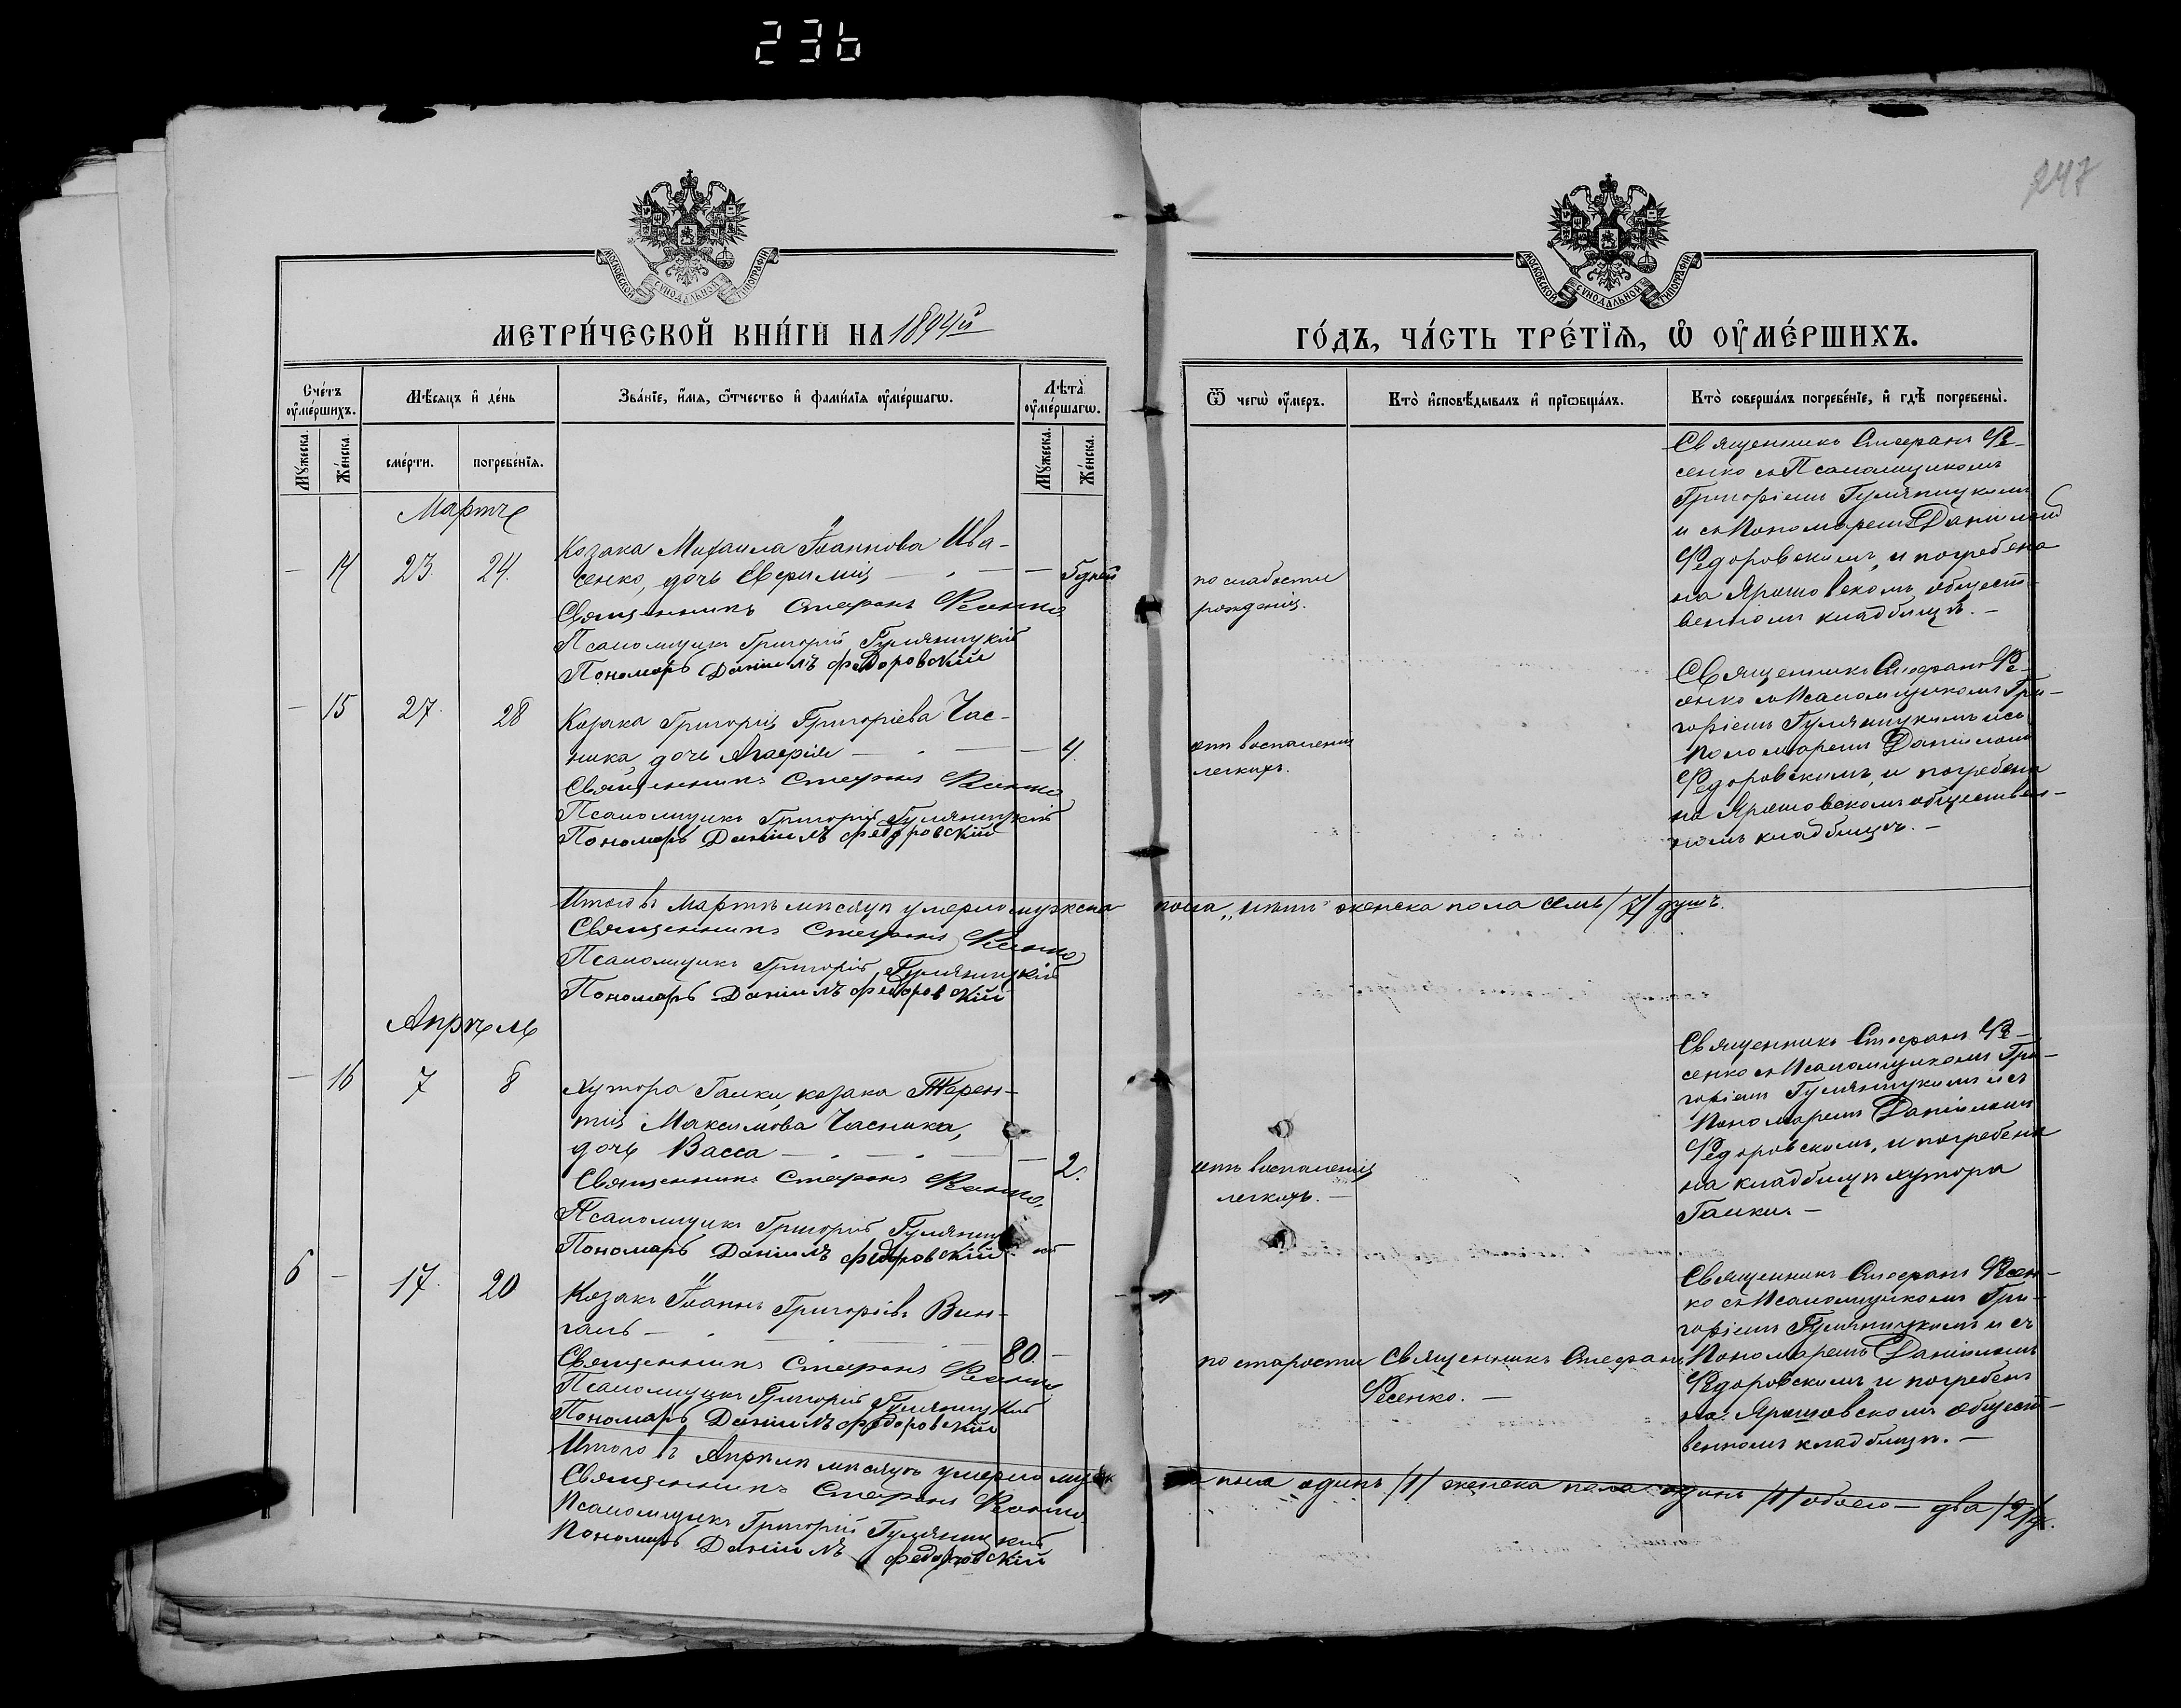 236
247
МОСКОВСКОЙ СУНОДАЛЬНОЙ ТИПОГРАФІИ
МОСКОВСКОЙ СУНОДАЛЬНОЙ ТИПОГРАФІИ
МЕТРИ́ЧЕСКОЙ КНИ́ГИ НА 1894й
ГО́ДЪ, ЧА́СТЬ ТРЕ́ТЇѦ, Ѡ ОУМЕ́РШИХЪ.
Сче́тъ оумершихъ.
Мѣсяцъ и де́нь
Зва́нїе, и́мѧ, ѻтчество и фами́лїѧ оуме́ршагѡ.
Лѣта̀ оуме́ршагѡ.
Мꙋжеска.
Же́нска.
сме́рти.
погребе́нїѧ.
Мꙋжеска.
Же́нска.
Ѿ чегѡ̀ оу́меръ.
Кто̀ и҆сповѣ́дывалъ и҆ прїѡбща́лъ.
Кто̀ соверша́лъ погребе́нїе, и҆ гдѣ̀ погребены̀.
Мартъ
— 14 23. 24.
Козака Михаила Іоаннова Ива-
сенко, дочь Евфимія — — — 5 дней
Священникъ Стефанъ Фесенко
Псаломщикъ Григорій Гуляницкій
Пономарь Даніилъ Федоровскій
по слабости
рожденія.
Священникъ Стефанъ Фе-
сенко съ Псаломщикомъ
Григоріемъ Гуляницкимъ
и съ Пономаремъ Даніиломъ
Федоровскимъ, и погребена
на Ярошовскомъ общест-
венномъ кладбищѣ. —
— 15 27. 28
Козака Григорія Григоріева Час-
ника, дочь Агафія — — — 4.
Священникъ Стефанъ Фесенко
Псаломщикъ Григорій Гуляницкій
Пономарь Даніилъ Федоровскій
отъ воспаленія
легкихъ.
Священникъ Стефанъ Фе-
сенко съ Псаломщикомъ Гри-
горіемъ Гуляницкимъ и съ
Пономаремъ Даніиломъ
Федоровскимъ, и погребена
на Ярошовскомъ обществен-
номъ кладбищѣ. —
Итого въ Мартѣ мѣсяцѣ умерло мужеска пола „нѣтъ“ женска пола семь /7/ душъ.
Священникъ Стефанъ Фесенко
Псаломщикъ Григорій Гуляницкій
Пономарь Даніилъ Федоровскій
Апрѣль
— 16 7 8
Хутора Галки, козака Терен-
тія Максимова Часника,
дочь Васса — — — 2.
Священникъ Стефанъ Фесенко.
Псаломщикъ Григорій Гуляницкій
Пономарь Даніилъ Федоровскій
отъ воспаленія
легкихъ. —
Священникъ Стефанъ Фе-
сенко съ Псаломщикомъ Гри-
горіемъ Гуляницкимъ и съ
Пономаремъ Даніиломъ
Федоровскимъ, и погребена
на кладбищѣ хутора
Галки. —
6 — 17. 20
Козакъ Іоаннъ Григоріевъ Вин-
галь — — — 80. —
Священникъ Стефанъ Фесенко
Псаломщикъ Григорій Гуляницкій
Пономарь Даніилъ Федоровскій
по старости
Священникъ Стефанъ
Фесенко. —
Священникъ Стефанъ Фесен-
ко съ Псаломщикомъ Гри-
горіемъ Гуляницкимъ и съ
Пономаремъ Даніиломъ
Федоровскимъ и погребенъ
на Ярошовскомъ общест-
венномъ кладбищѣ. —
Итого въ Апрѣлѣ мѣсяцѣ умерло мужска пола одинъ /1/ женска пола одинъ /1/ обоего — два /2/ д.
Священникъ Стефанъ Фесенко.
Псаломщикъ Григорій Гуляницкій
Пономарь Даніилъ Федоровскій